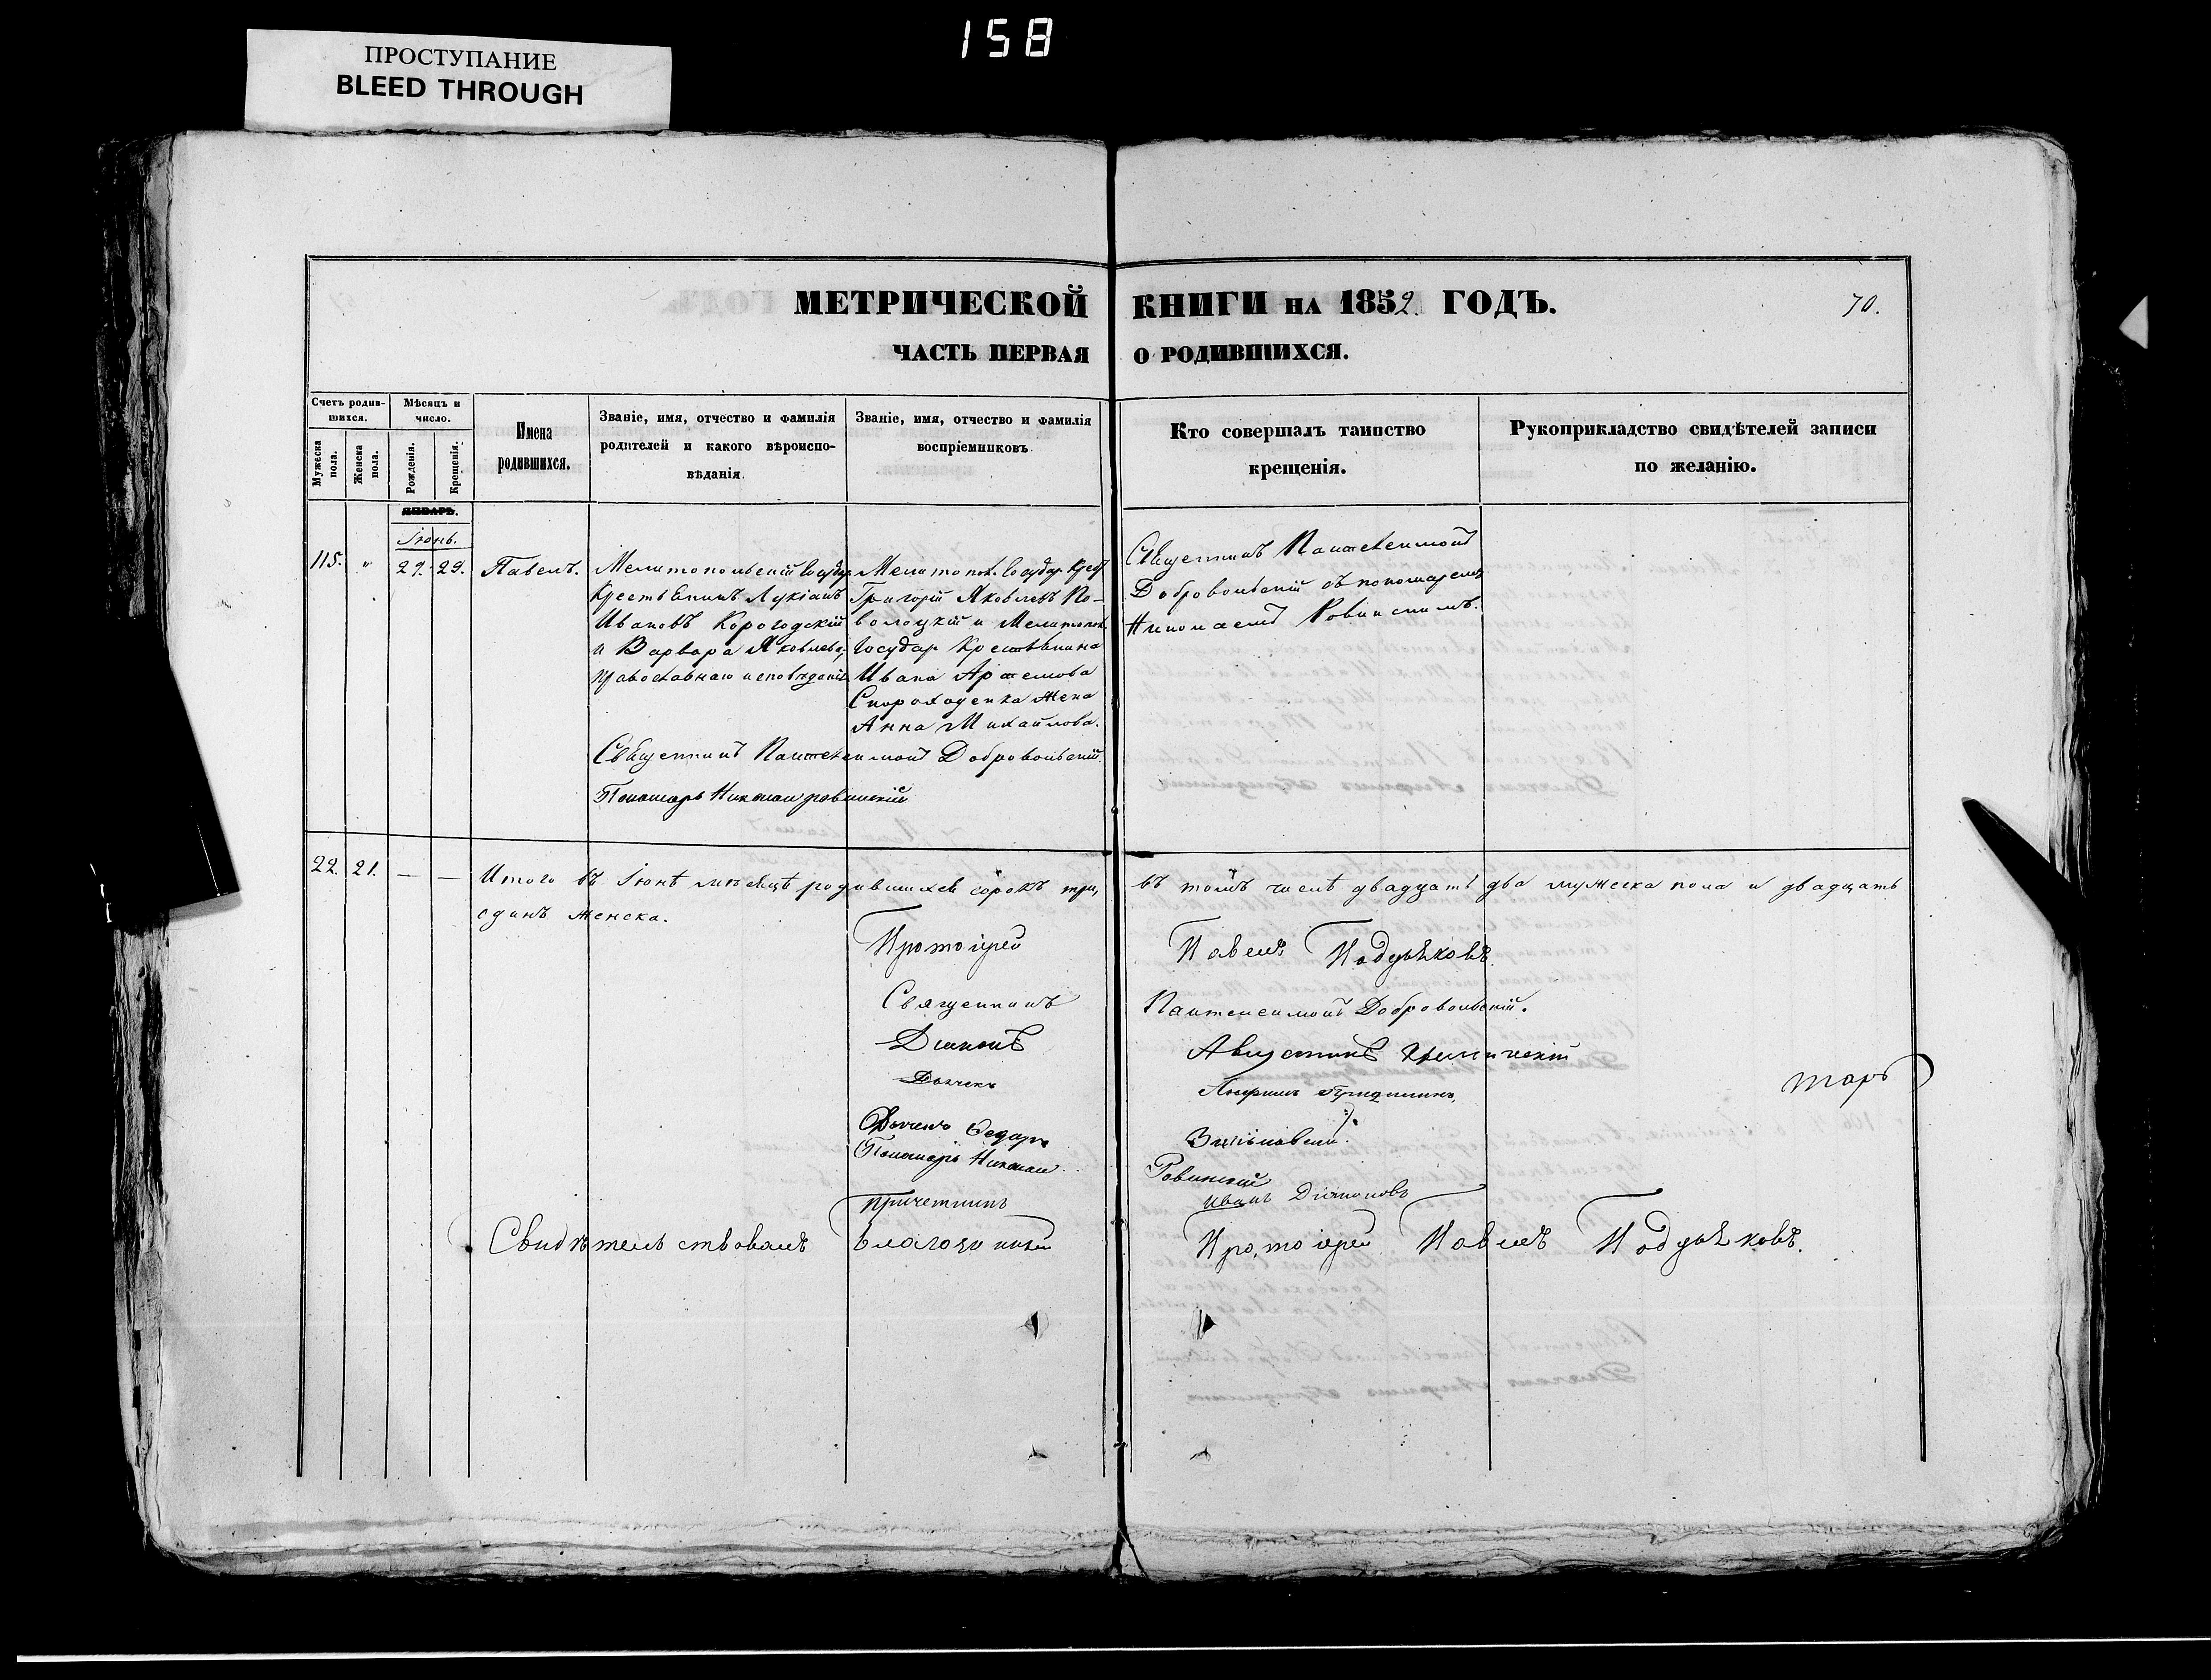 158
ПРОСТУПАНИЕ
BLEED THROUGH
МЕТРИЧЕСКОЙ КНИГИ НА 1852. ГОДЪ.
70.
ЧАСТЬ ПЕРВАЯ О РОДИВШИХСЯ.
Счетъ родив-
шихся.
Мужеска пола.
Женска пола.
Мѣсяцъ и
число.
Рожденія.
Крещенія.
Имена
родившихся.
Званіе, имя, отчество и фамилія
родителей и какого вѣроиспо-
вѣданія.
Званіе, имя, отчество и фамилія
воспріемниковъ.
Кто совершалъ таинство
крещенія.
Рукоприкладство свидѣтелей записи
по желанію.
ЯНВАРЬ.
Іюнь.
115. " 29. 29. Павелъ.
Мелитопольскій Государ
Крестьянинъ Лукіанъ
Ивановъ Корогодскій
и Варвара Яковлева,
православнаго исповѣданія
Мелитопол. Государ Крест
Григорій Яковлевъ По-
волоцкій и Мелитопол.
Государ Крестьянина
Ивана Артемова
Скороходенка жена
Анна Михайлова.
Священникъ Пантелеимонъ Добровольскій.
Пономарь Николай Ровинскій
Священникъ Пантелеимонъ
Добровольскій съ пономаремъ
Николаемъ Ровинскимъ.
22. 21. — — Итого въ Іюнѣ мѣсяцѣ родившихся сорокъ три, въ томъ числѣ двадцать два мужеска пола и двадцать
одинъ женска.
Протоіерей Павелъ Поддьяковъ.
Священникъ Пантелеимонъ Добровольскій.
Діаконъ Августинъ
Дьячекъ
Дьячекъ Федоръ
Пономарь Николай Ровинскій
Причетникъ Иванъ Діяконовъ
Свидѣтельствовалъ благочинный Протоіерей Павелъ Поддьяковъ.